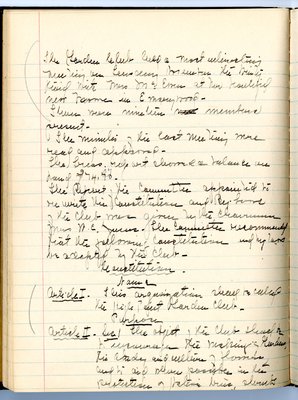 The Garden Club held a most interesting
meeting on Tuesday, November the twenty
third with Mrs. McEwen at her beautiful
new home in Emorywood.
There were nineteen members
present.
The minutes of the last meeting were
read and approved.
The Treas. report showed a balance on
hand
The Report of the Committee appointed to
re-write the Constitution and By-laws
of the Club was given by the Chairman
Mrs. W. C. Jones. The Committee recommended
that the following Constitution and by-laws
be adopted by the Club -
Constitution.
Name
Article I. This organization shall be called
the High Point Garden Club.
Purpose
Article II. The object of the Club shall be
to encourage the making of Gardens,
the study and culture of flowers,
and to aid when possible in the
protection of native trees, shrubs